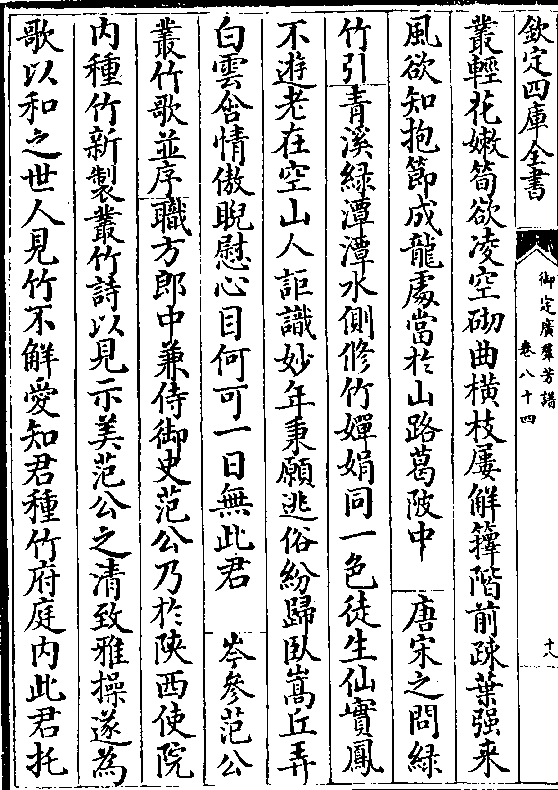 欽定四庫全書
御定廣羣芳譜
卷八十四
十八
叢輕花嫩筍欲凌空砌曲橫枝屢解籜階前疎葉强来
風欲知抱節成龍處當於山路葛陂中　唐宋之問緑
竹引青溪緑潭潭水側修竹嬋娟同一色徒生仙實鳳
不遊老在空山人詎識妙年秉願逃俗紛歸卧嵩丘弄
白雲含情傲睨慰心目何可一日無此君　岑參范公
叢竹歌並序職方郎中兼侍御史范公乃於陜西使院
内種竹新製叢竹詩以見示美范公之清致雅操遂為
歌以和之世人見竹不解愛知君種竹府庭内此君托